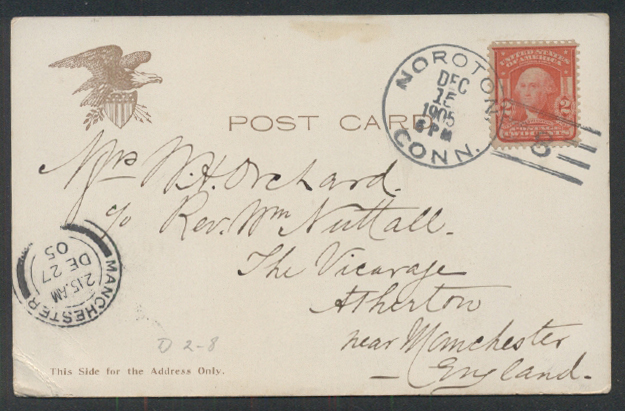 POST CARD
NOROTON
DEC
15
1905
6 PM
CONN.
UNITED STATES
OF AMERICA
2 2
POSTAGE
TWO CENTS
Mrs W. H. Orchard.
c/o Rev. Wm Nuttall.
The Vicarage
Atherton
near Manchester
England.
MANCHESTER
2.15 AM
DE 27
05
D 2-8
This Side for the Address Only.